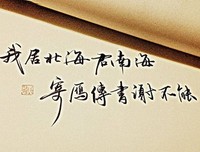 我居北海君南海
寄雁傳書謝不能